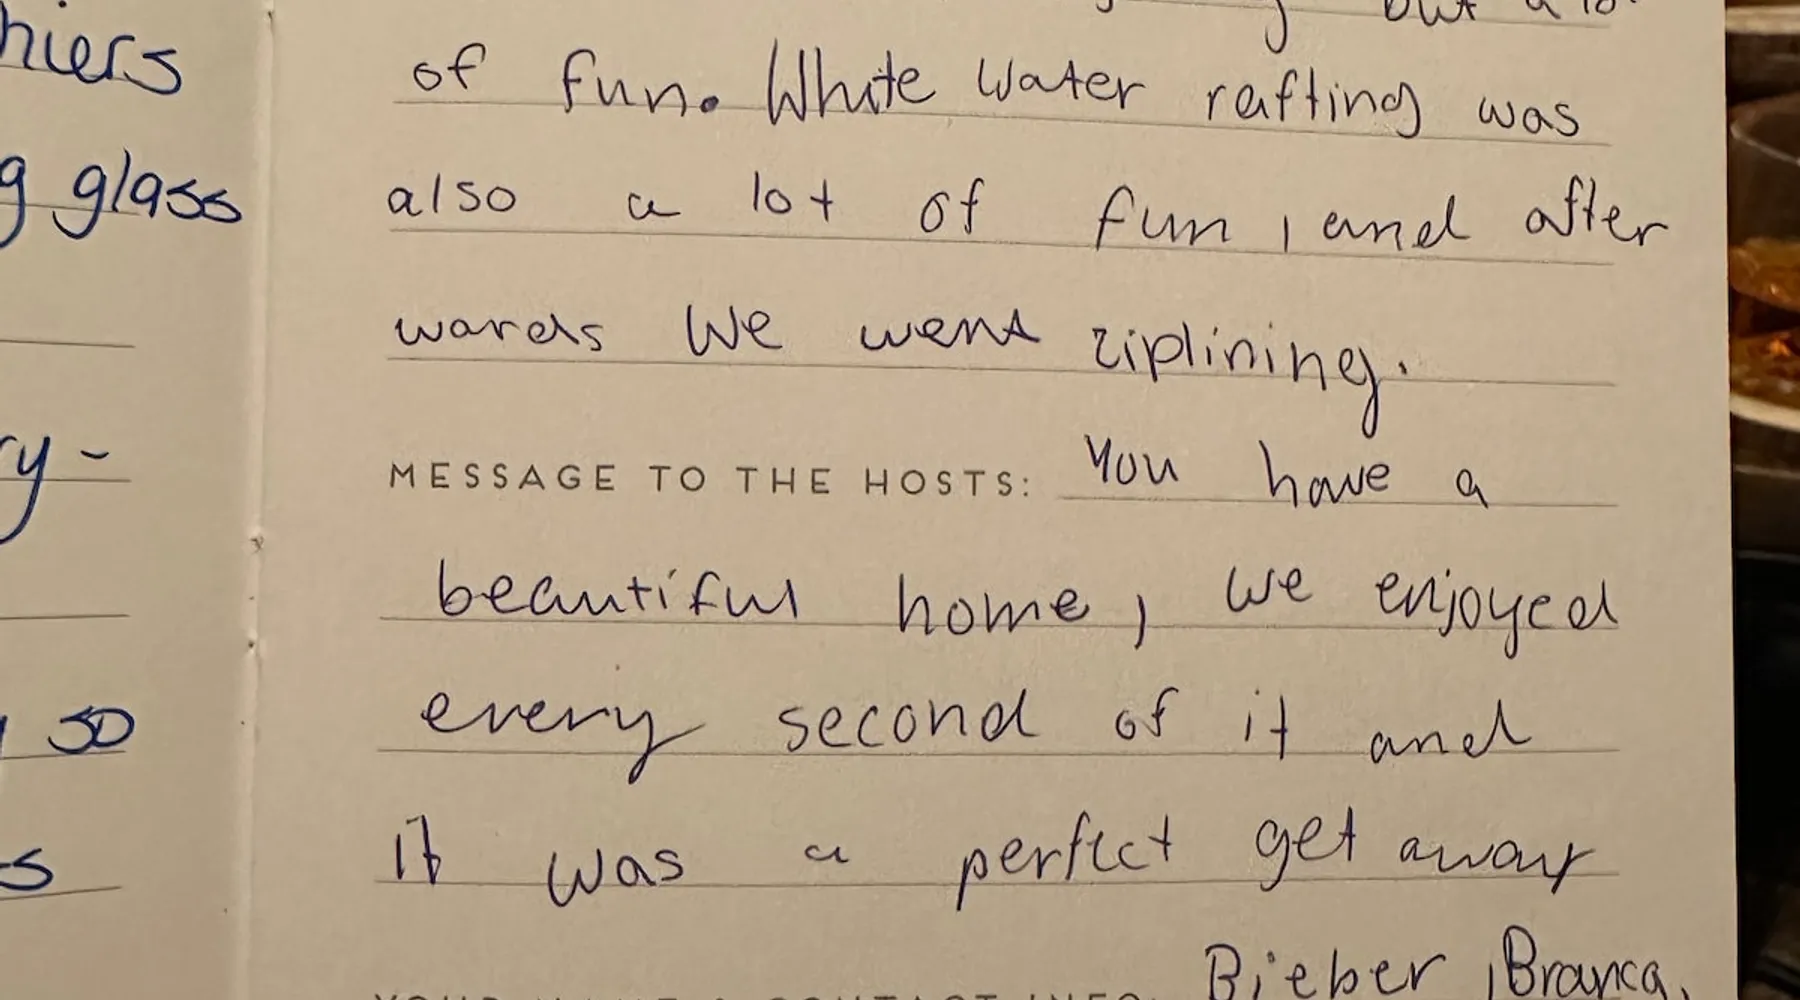 hiers
g glass
ry-
so
s
but a lo
of fun. White water rafting was
also a lot of fun, and after
wards we went ziplining.
MESSAGE TO THE HOSTS: You have a
beautiful home, we enjoyed
every second of it and
it was a perfect get away
Bieber, Branca,